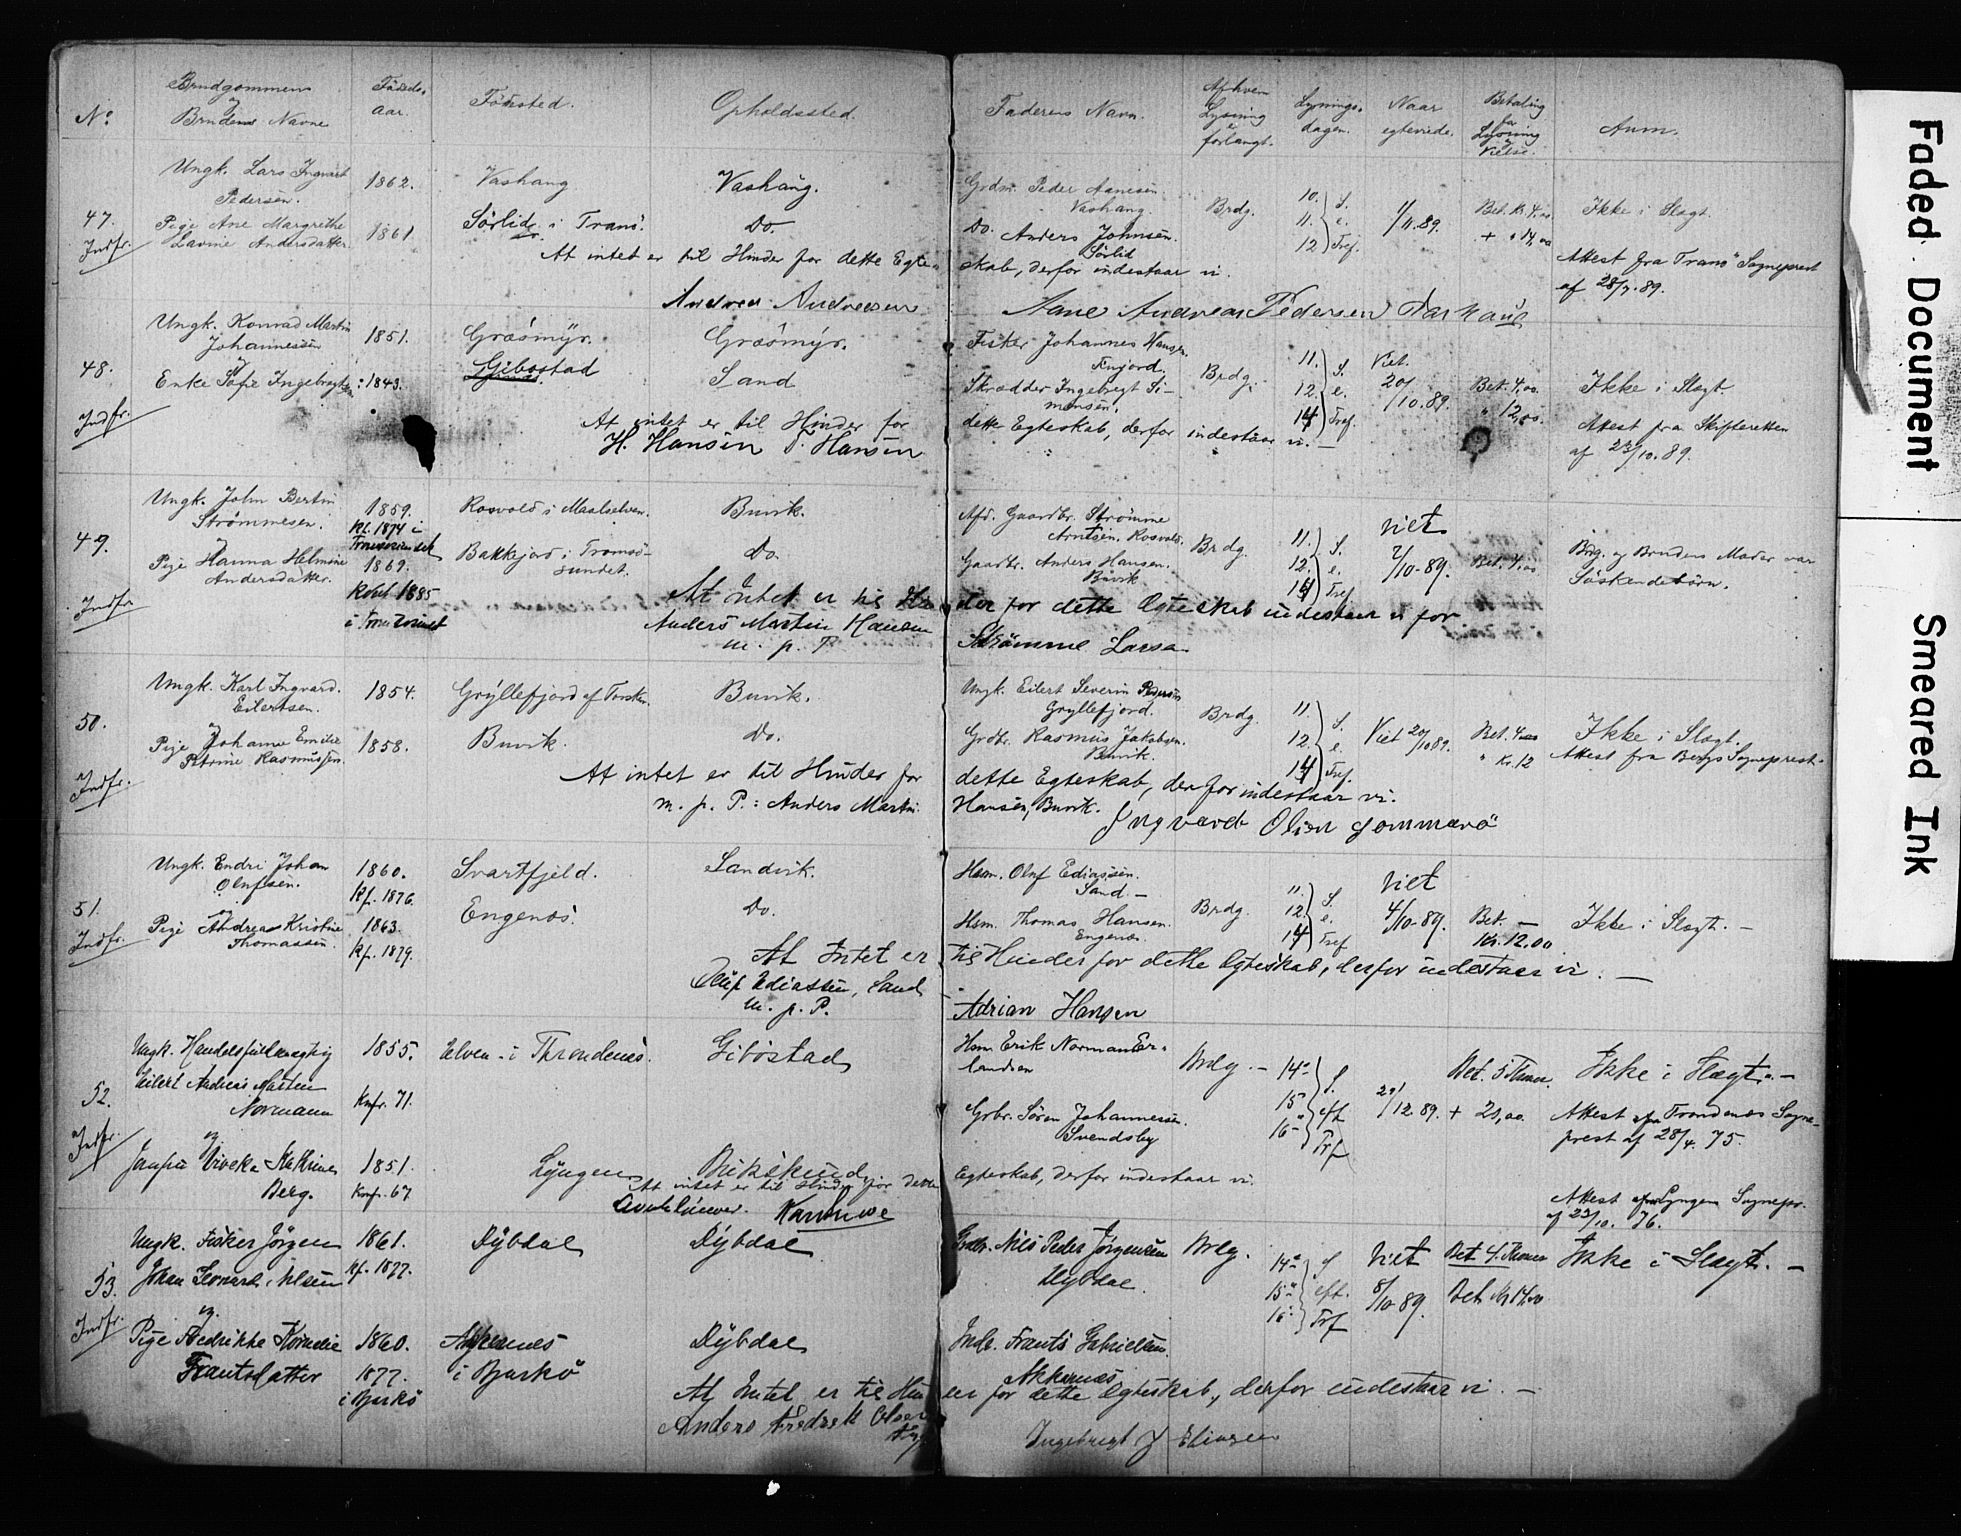 No
Brudgommens
og
Brudens Navne
Fødsels-
aar.
Fødested.
Opholdssted.
Faderens Navn.
Af hvem
Lysning
er
forlangt.
Lysnings-
dagen.
Naar
egteviede.
Betaling
for
Lysning
og
Vielse.
Anm.
47.
Indfr.
Ungk. Lars Ingvart
Pedersen.
Pige Ane Margrethe
Lavine Andersdatter
1862.
1861
Vashaug
Sörlid i Tranö.
Vashaug.
Do.
Grdm. Peder Aanesen
Vashaug.
Do. Anders Johnsen.
Sörlid
Brdg.
10.
11.
12
S.
e.
Tref.
/11.89.
Bet. Kr. 4,00
+ 14,00
Ikke i Slægt.
Attest fra Tranö Sogneprest
af 28/9.89.
At intet er til Hinder for dette Egte-
skab, derfor indestaar vi.
Andrea Andreasen
Aane Andreas Pedersen
48.
Indfr.
Ungk. Konrad Martin
Johannessen
og
Enke Sofie Ingebrigtsen
1851.
1843.
Græsmyr.
Gibostad
Græsmyr.
Sand
Fisker Johannes Hansen
Finjord.
Skrædder Ingebregt Si-
monsen.
Brdg.
11.
12.
14
S.
e.
Tref.
Viet.
20/10.89.
Bet. 4,00.
" 12,00.
Ikke i Slægt.
Attest fra Skifteretten
af 23/10.89.
At intet er til Hinder for
dette Egteskab, derfor indestaar vi.
H. Hansen P. Hansen
49.
Indfr.
Ungk. John Bertin
Strømmesen.
og
Pige Hanna Helmine
Andersdatter.
1859.
Kf. 1874 i
Tromsösundet
1869.
Kobef 1885
i Tromsösundet
Rosvold i Maalselven.
Bakkejord i Tromsö-
sundet.
Buvik.
Do.
Afd. Gaardbr. Strømme
Arntsen, Rosvold.
Gaardbr. Anders Hansen.
Buvik
Brdg.
11.
12.
14
S.
e.
Tref
Viet
7/10-89.
Bet. 4,00
Brdg. og Brudens Moder var
Söskendebörn.
At Intet er til Hin
der for dette Egteskab indestaar vi for
Anders Martin Hansen
m. p. P
Strømme Larsen
50.
Indfr.
Ungk. Karl Ingvard.
Eilertsen.
og
Pige Johanna Emilie
Petrine Rasmussen.
1854.
1858.
Gryllefjord af Torsken.
Buvik.
Buvik.
Do.
Ungk. Eilert Severin Pedersen
Gryllefjord.
Grdbr. Rasmus Jakobsen.
Buvik.
Brdg.
11.
12.
14
S.
e.
Tref.
Viet 20/10 89.
Bet. 4,00
" Kr. 12
Ikke i Slægt.
Attest fra Bergs Sogneprest.
At intet er til Hinder for
dette Egteskab, derfor indestaar vi.
m. p. P.: Anders Martin
Hansen, Buvik.
Ingvard Olsen Sommarø
51.
Indfr.
Ungk. Endri Johan
Olufsen.
og
Pige Andrea Kristine
Thomassen.
1860.
Kf. 1876.
1863.
Kf. 1879.
Svartfjeld.
Engenæs.
Sandvik.
Do.
Hsm. Oluf Ediassen.
Sand.
Hsm. Thomas Hansen.
Engenæs.
Brdg.
11.
12.
14
S.
e.
Tref
Viet
4/10-89.
Bet. —
Kr. 12.00
Ikke i Slægt. —
At Intet er
til Hinder for dette Egteskab, derfor indestaar vi. —
Oluf Ediassen, Sand
m. p. P.
Adrian Hansen
52.
Indfr.
Ungk. Handelsfuldmægtig
Eilert Andreas Marten
Normann
og
Jomfru Viveka Kathrine
Berg.
1855.
Knfr. 71.
1851.
Konfr. 67
Elven i Throndenæs.
Lyngen
Gibostad
Hsm. Erik Norman Er-
landsen
Grbr. Sören Johannessen.
Svendsby
Brdg. —
14-
15
16-
S.
eft
Trf
2/12.89.
Bet. 5 Kroner.
+ 21,00.
Ikke i Slægt. —
Attest fra Trondenæs Sogne-
prest af 28/4. 75.
Attest fra Lyngen Sognepr.
af 23/10. 76.
At intet er til Hinder for dette
Egteskab, derfor indestaar vi.
53.
Indfr.
Ungk. Fisker Jörgen
Johan Leonard Nilsen
og.
Pige Fredrikke Kornelie
Frantsdatter
1861.
Kf. 1877.
1860.
1877.
i Bjarkö
Dybdal
Akkenes
i Bjarkö
Dybdal
Dybdal
Grdbr. Nils Peder Jørgensen
Dybdal.
Indr. Frants Gabrielsen.
Akkenæs
Brdg.
14
15
16
S
eft.
Trf
Viet
8/10 89.
Bet 4 Kroner
Bet. Kr 14.00
Ikke i Slægt. —
At Intet er til Hin
er for dette Egteskab, derfor indestaar vi. —
Anders Fredrik Olsen
Ingebregt J Elingsen
Faded Document
Smeared Ink